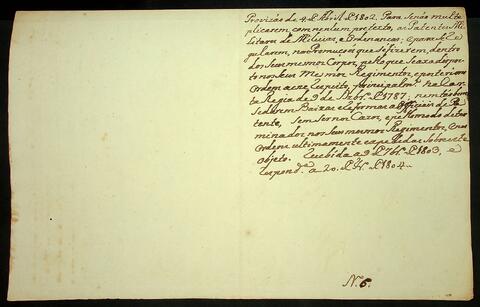 Provizão de 4. d'Abril d'1802. Para se não multe
plicarem com nenhum pretexto, as Patentes Mi
litares de Milicias, e Ordenanças; e para se Re
gularem, nas Promuçoens que se fizerem, dentro
dos seus mesmos Corpos, pelo que se axa dispos
to nos seus Mesmos Regimentos, e posteriores
Ordens a este Respeito, principalm.te na Car
ta Regia de 9 de 1787. nem tão bem
se darem Baixas e Reformas a Officiais de Pa
tente, sem ser nos Cazos, e pelo modo deter
minado nos seus mesmos Regimentos, e nas
Ordens ultimamente expedidas sobre este
Objeto. Recebida a 9 d' d'1803, e
Respond.da a 20. d' d'1804.
N. 6.